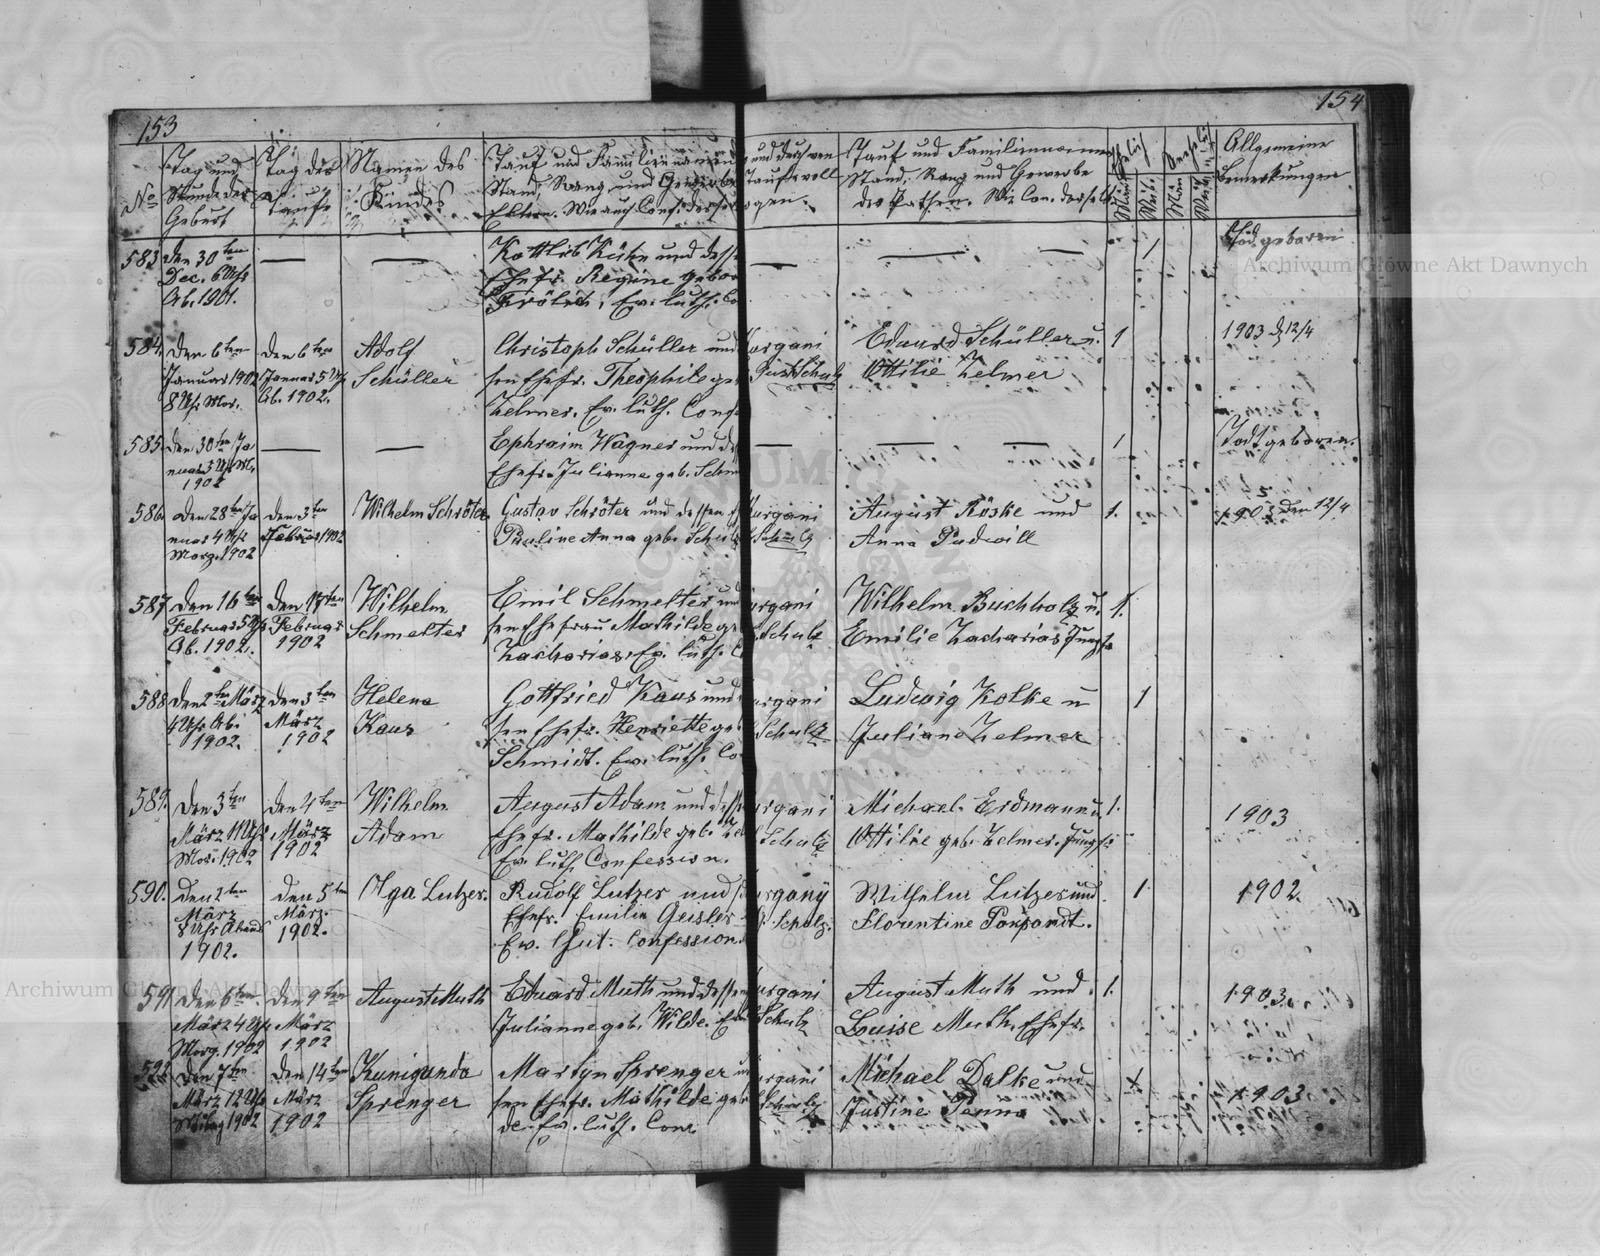 153
154
No
Tag und Stunde der Geburt
Tag der Taufe
Namen des Kindes
Tauf und Familiennamen
Stand, Rang und Gewerbe
Eltern. Wie auch Conf. derselben
und durch wen
Tauf und Familiennamen
Stand, Rang und Gewerbe
der Pathen. Wie Con. derselb.
Allgemeine
Bemerkungen
583
den 30ten
Dec. 6 Uhr
Ab. 1901.
— —
Gottlib Kühn und dess
Ehefr. Regine gebor
Ev. luth. Co
—
— —
1
Tod geboren
584
den 6ten
Januar 1902
8 Uhr Mor.
den 6ten
Januar 5 Uhr
Ab. 1902.
Adolf
Schüller
Christoph Schüller und
sen Ehefr. Theophile ge
Zelmer. Ev. luth. Conf
urgani
Gust Schulz
Eduard Schüller u.
Ottilie Zelmer
1
1903 d 12/4
585.
den 30ten Ja
nuar 3 Uhr
1902
— —
Ephraim Wagner und de
Ehefr. Julianne geb. Schm
—
— —
1
Todt geboren.
586.
den 28ten Ja
nuar 4 Uhr
Morg. 1902
den 3ten
Februar 1902
Wilhelm Schröter
Gustav Schröter und dessen
Pauline Anna geb. Schulz
urgani
Schulz
August Röske und
Anna Padwill
1.
1903 den 12/4
587
den 16ten
Februar 5 Uhr
Ab. 1902.
den 17ten
Februar
1902
Wilhelm
Schmelter
Emil Schmelter und
sen Ehefrau Mathilde ge
Zacharias, Ev. luth. C
urgani
Schulz
Wilhelm Buchholz u.
Emilie Zacharias Jungf.
1.
588
den 2ten März
4 Uhr Ab.
1902.
den 3ten
März
1902
Helena
Kaus
Gottfried Kaus und
sen Ehefr. Henriette ge
Schmidt. Ev. luth. Co
urgani
Schulz
Ludwig Kolke u
Juliane Zelmer
1
589.
den 3ten
März 11 Uhr
Mor. 1902
den 4ten
März
1902
Wilhelm
Adam
August Adam und dess
Ehefr. Mathilde geb. Zel
Ev. luth Confession.
urgani
Schulz
Michael Erdmann u.
Ottilie geb. Zelmer. Jungf.
1.
1903
590.
den 2ten
März
8 Uhr Abend
1902.
den 5ten
März.
1902.
Olga Lutzer.
Rudolf Lutzer und
Ehefr. Emilie Geisler
Ev. Lut. Confession.
urgany
Schulz.
Wilhelm Lutzer und
Florentine
1.
1902.
591
den 6ten
März 4 Uhr
Morg. 1902
den 9ten
März
1902
August Muth
Eduard Muth und dessen
Julianne geb. Wilde. Ev
urgani
Schulz
August Muth und
Louise Muth. Ehefr.
1.
1903.
592
den 7ten
März 12 Uhr
Mittag 1902
den 14ten
März
1902
Kunigunda
Sprenger
Martyn Sprenger u
sen Ehefr. Mathilde geb
Ev. luth. Con
urgani
Schulz
Michael Dalke und
Justine Penno
1903
Archiwum Główne Akt Dawnych
Archiwum Główne Akt Dawnych